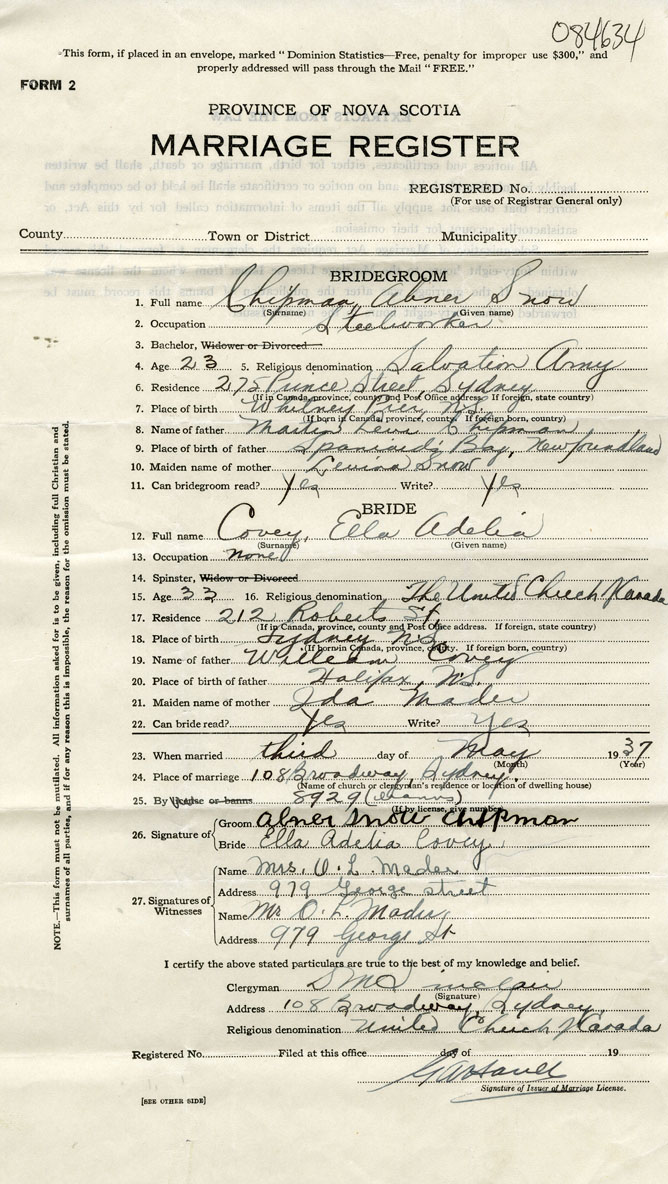 084634
This form, if placed in an envelope, marked " Dominion Statistics—Free, penalty for improper use $300," and
properly addressed will pass through the Mail " FREE."
FORM 2
PROVINCE OF NOVA SCOTIA
MARRIAGE REGISTER
REGISTERED No.
(For use of Registrar General only)
County Town or District Municipality
BRIDEGROOM
1. Full name Chipman, Abner Snow
(Surname) (Given name)
2. Occupation Steelworker
3. Bachelor, Widower or Divorced
4. Age 23 5. Religious denomination Salvation Army
6. Residence 275 Prince Street, Sydney
(If in Canada, province, county and Post Office address. If foreign, state country)
7. Place of birth Whitney Pier, N.S.
(If born in Canada, province, county. If foreign born, country)
8. Name of father Martin Levi Chipman
9. Place of birth of father Spaniard's Bay, Newfoundland
10. Maiden name of mother Snow
11. Can bridegroom read? Yes Write? Yes
BRIDE
12. Full name Covey, Ella Adelia
(Surname) (Given name)
13. Occupation none
14. Spinster, Widow or Divorced
15. Age 33 16. Religious denomination The United Church Canada
17. Residence 212 Roberts St.
(If in Canada, province, county and Post Office address. If foreign, state country)
18. Place of birth Sydney N.S.
(If born in Canada, province, county. If foreign born, country)
19. Name of father William Covey
20. Place of birth of father Halifax, N.S.
21. Maiden name of mother Ida Mader
22. Can bride read? Yes Write? Yes
23. When married third day of May 1937
(Month) (Year)
24. Place of marriage 108 Broadway, Sydney.
(Name of church or clergyman's residence or location of dwelling house)
25. By license or banns 8929
(If by license, give number)
26. Signature of
Groom Abner Snow Chipman
Bride Ella Adelia Covey
27. Signatures of Witnesses
Name Mrs. O. L. Mader
Address 979 George street
Name Mr O. L. Mader
Address 979 George St
I certify the above stated particulars are true to the best of my knowledge and belief.
Clergyman
(Signature)
Address 108 Broadway, Sydney
Religious denomination United Church Canada
Registered No. Filed at this office day of 19
Signature of Issuer of Marriage License.
[SEE OTHER SIDE]
NOTE.—This form must not be mutilated. All information asked for is to be given, including full Christian and
surnames of all parties, and if for any reason this is impossible, the reason for the omission must be stated.